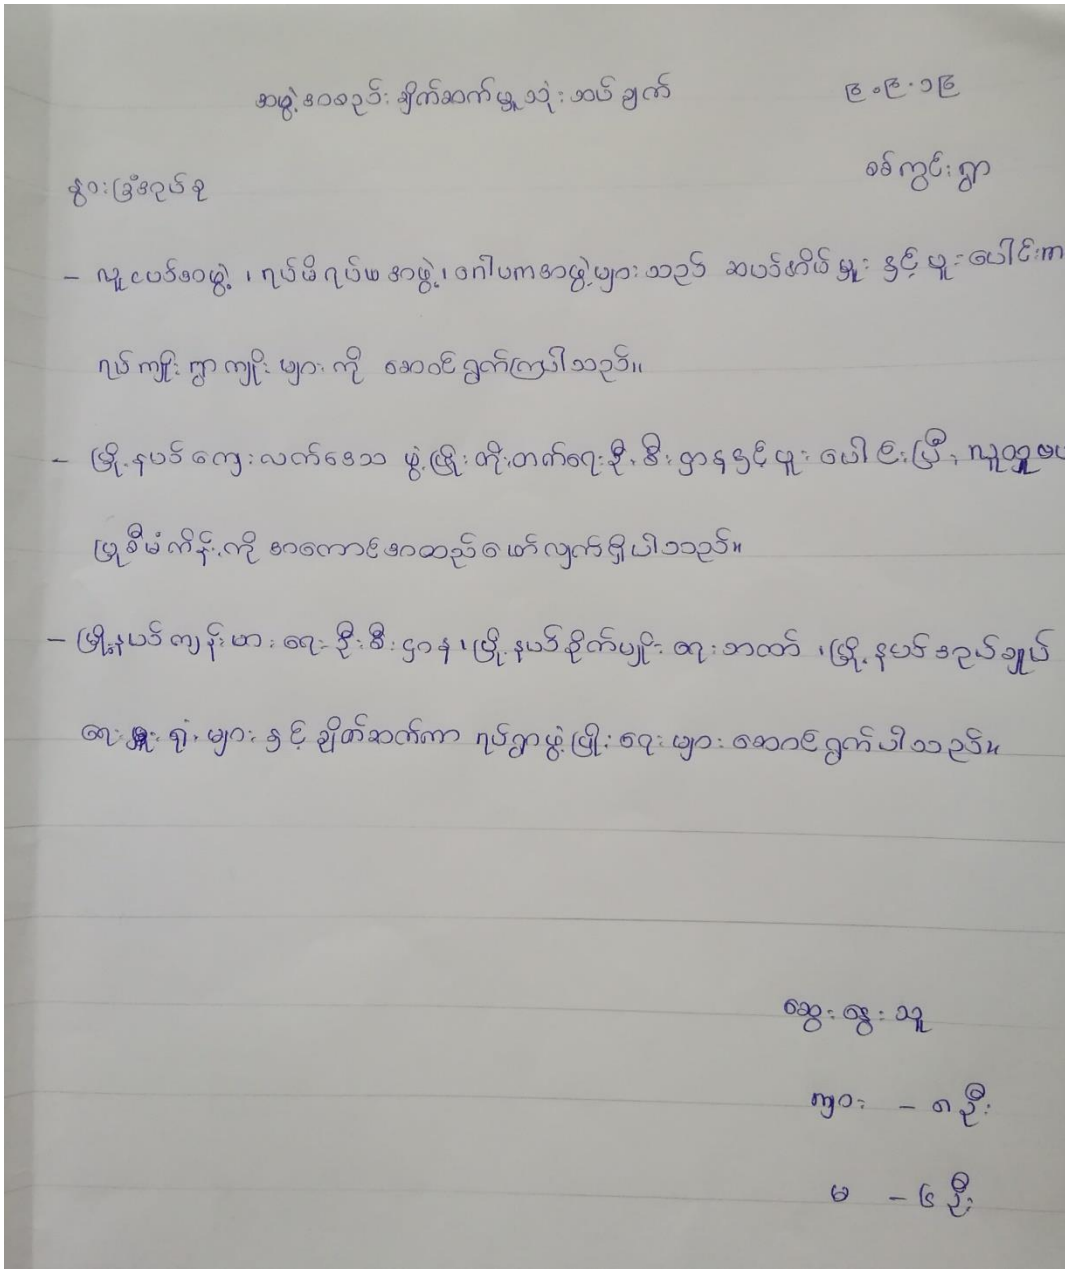 အဖွဲ့အစည်းချိတ်ဆက်မှုသုံးသပ်ချက်
၉.၉.၁၉
စစ်ကွင်းရွာ
နွားခြံအုပ်စု
- လူငယ်အဖွဲ့၊ ရပ်မိရပ်ဖအဖွဲ့၊ ဂေါပကအဖွဲ့များသည် ဆယ်အိမ်မှူးနှင့်ပူးပေါင်းကာ
ရပ်ကျိုးရွာကျိုးများကို ဆောင်ရွက်ကြပါသည်။
- မြို့နယ်ကျေးလက်ဒေသ ဖွံ့ဖြိုးတိုးတက်ရေးဦးစီးဌာနနှင့်ပူးပေါင်းပြီး လူထုဗဟို
ပြုစီမံကိန်းကို အကောင်အထည်ဖော်လျက်ရှိပါသည်။
- မြို့နယ်ကျန်းမာရေးဦးစီးဌာန၊ မြို့နယ်စိုက်ပျိုးရေးဘဏ်၊ မြို့နယ်အုပ်ချုပ်
ရေးမှူးရုံးများနှင့် ချိတ်ဆက်ကာ ရပ်ရွာဖွံ့ဖြိုးရေးများဆောင်ရွက်ပါသည်။
ဆွေးနွေးသူ
ကျား - ၈ ဦး
မ - ၆ ဦး